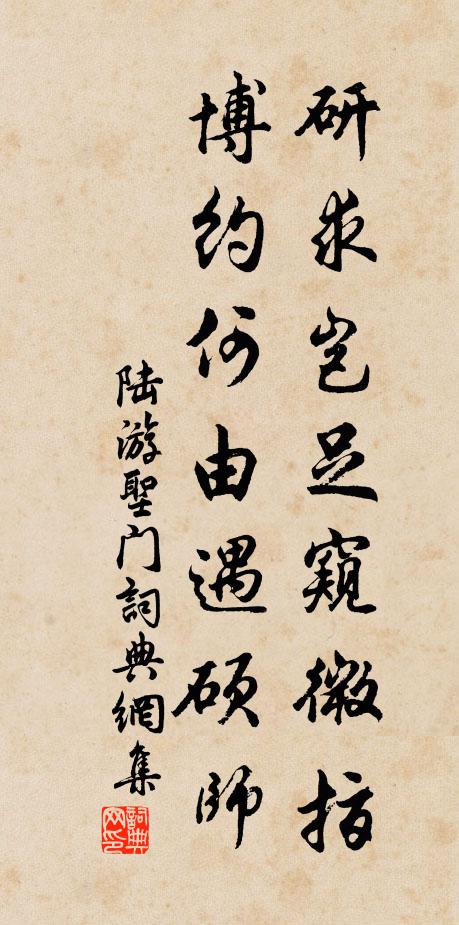 研求岂足窥微指
博约何由遇硕师
陆游聖门詞典網集
詞典
网印